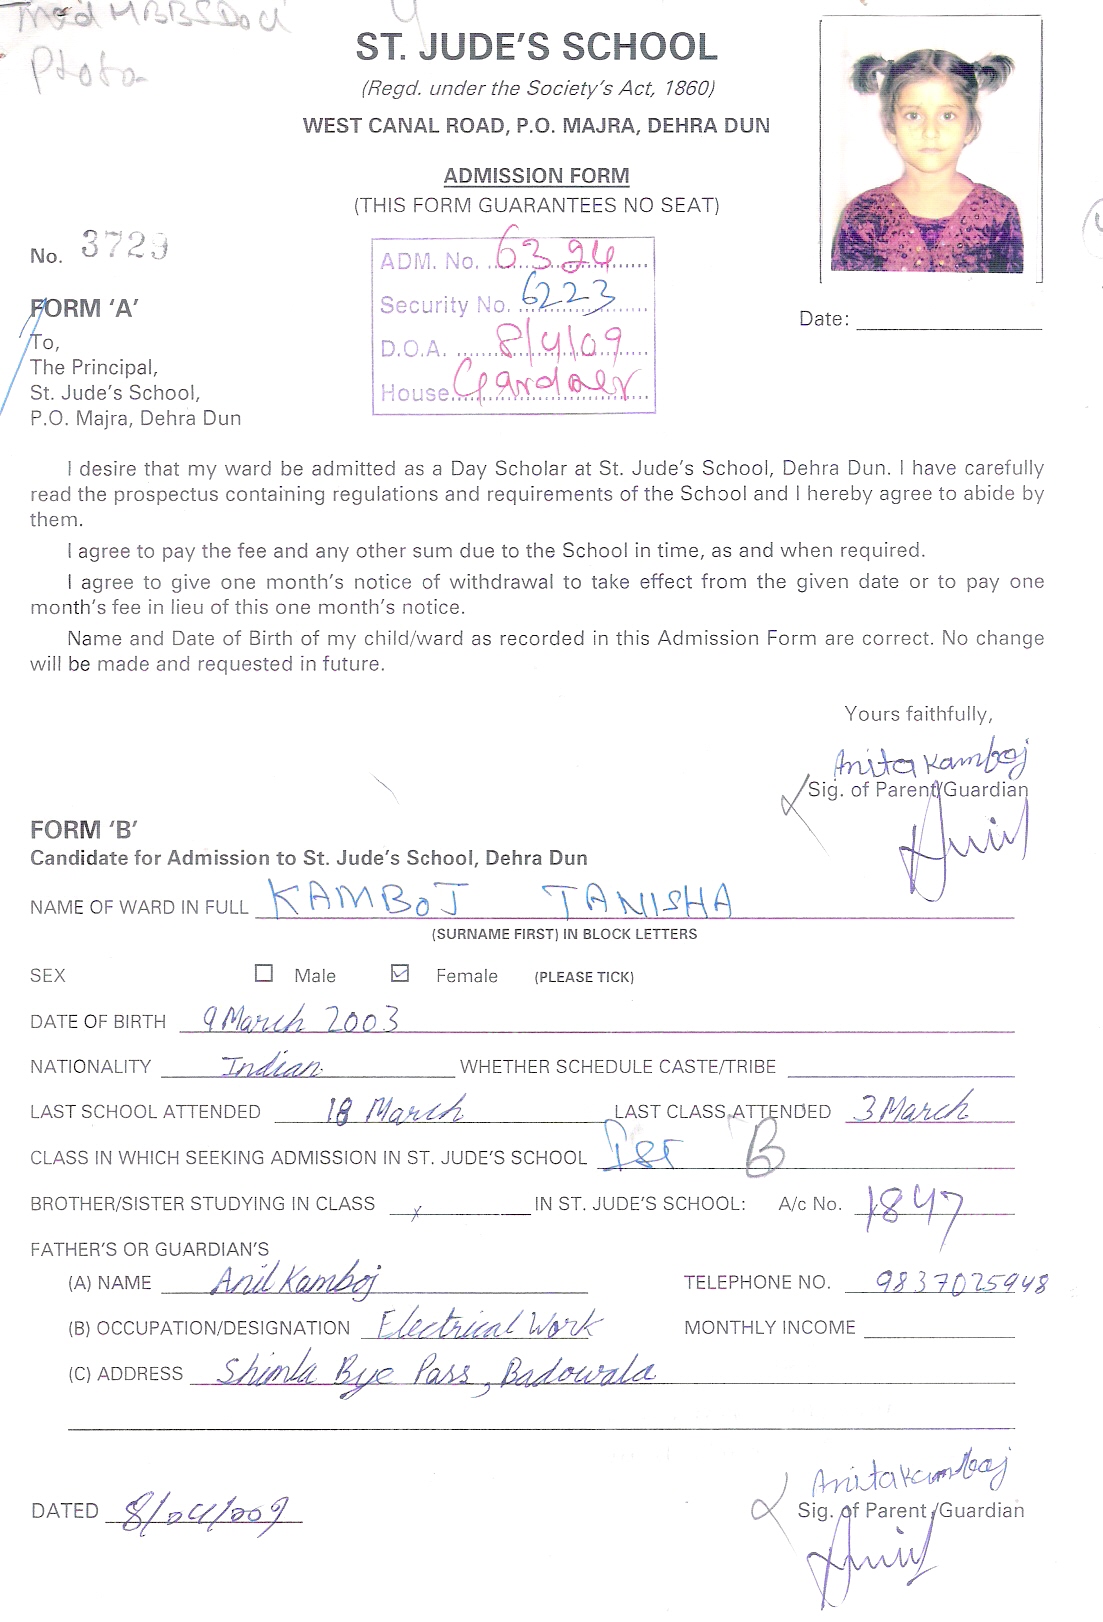 ST. JUDE'S SCHOOL
(Regd. under the Society's Act, 1860)
WEST CANAL ROAD, P.O. MAJRA, DEHRA DUN
ADMISSION FORM
(THIS FORM GUARANTEES NO SEAT)
No. 3729
ADM. No. 6324
Security No. 6223
D.O.A. 8/4/09
House
Date:
FORM 'A'
To,
The Principal,
St. Jude's School,
P.O. Majra, Dehra Dun
I desire that my ward be admitted as a Day Scholar at St. Jude's School, Dehra Dun. I have carefully
read the prospectus containing regulations and requirements of the School and I hereby agree to abide by
them.
I agree to pay the fee and any other sum due to the School in time, as and when required.
I agree to give one month's notice of withdrawal to take effect from the given date or to pay one
month's fee in lieu of this one month's notice.
Name and Date of Birth of my child/ward as recorded in this Admission Form are correct. No change
will be made and requested in future.
Yours faithfully,
Anita Kamboj
Sig. of Parent/Guardian
FORM 'B'
Candidate for Admission to St. Jude's School, Dehra Dun
NAME OF WARD IN FULL KAMBOJ TANISHA
(SURNAME FIRST) IN BLOCK LETTERS
SEX Male Female (PLEASE TICK)
DATE OF BIRTH 9 March 2003
NATIONALITY Indian WHETHER SCHEDULE CASTE/TRIBE
LAST SCHOOL ATTENDED 18 March LAST CLASS ATTENDED 3 March
CLASS IN WHICH SEEKING ADMISSION IN ST. JUDE'S SCHOOL Ist B
BROTHER/SISTER STUDYING IN CLASS x IN ST. JUDE'S SCHOOL: A/c No. 1847
FATHER'S OR GUARDIAN'S
(A) NAME Anil Kamboj TELEPHONE NO. 9837025948
(B) OCCUPATION/DESIGNATION Electrical Work MONTHLY INCOME
(C) ADDRESS Shimla Bye Pass, Badowala
Anita Kamboj
DATED 8/04/009 Sig. of Parent/Guardian